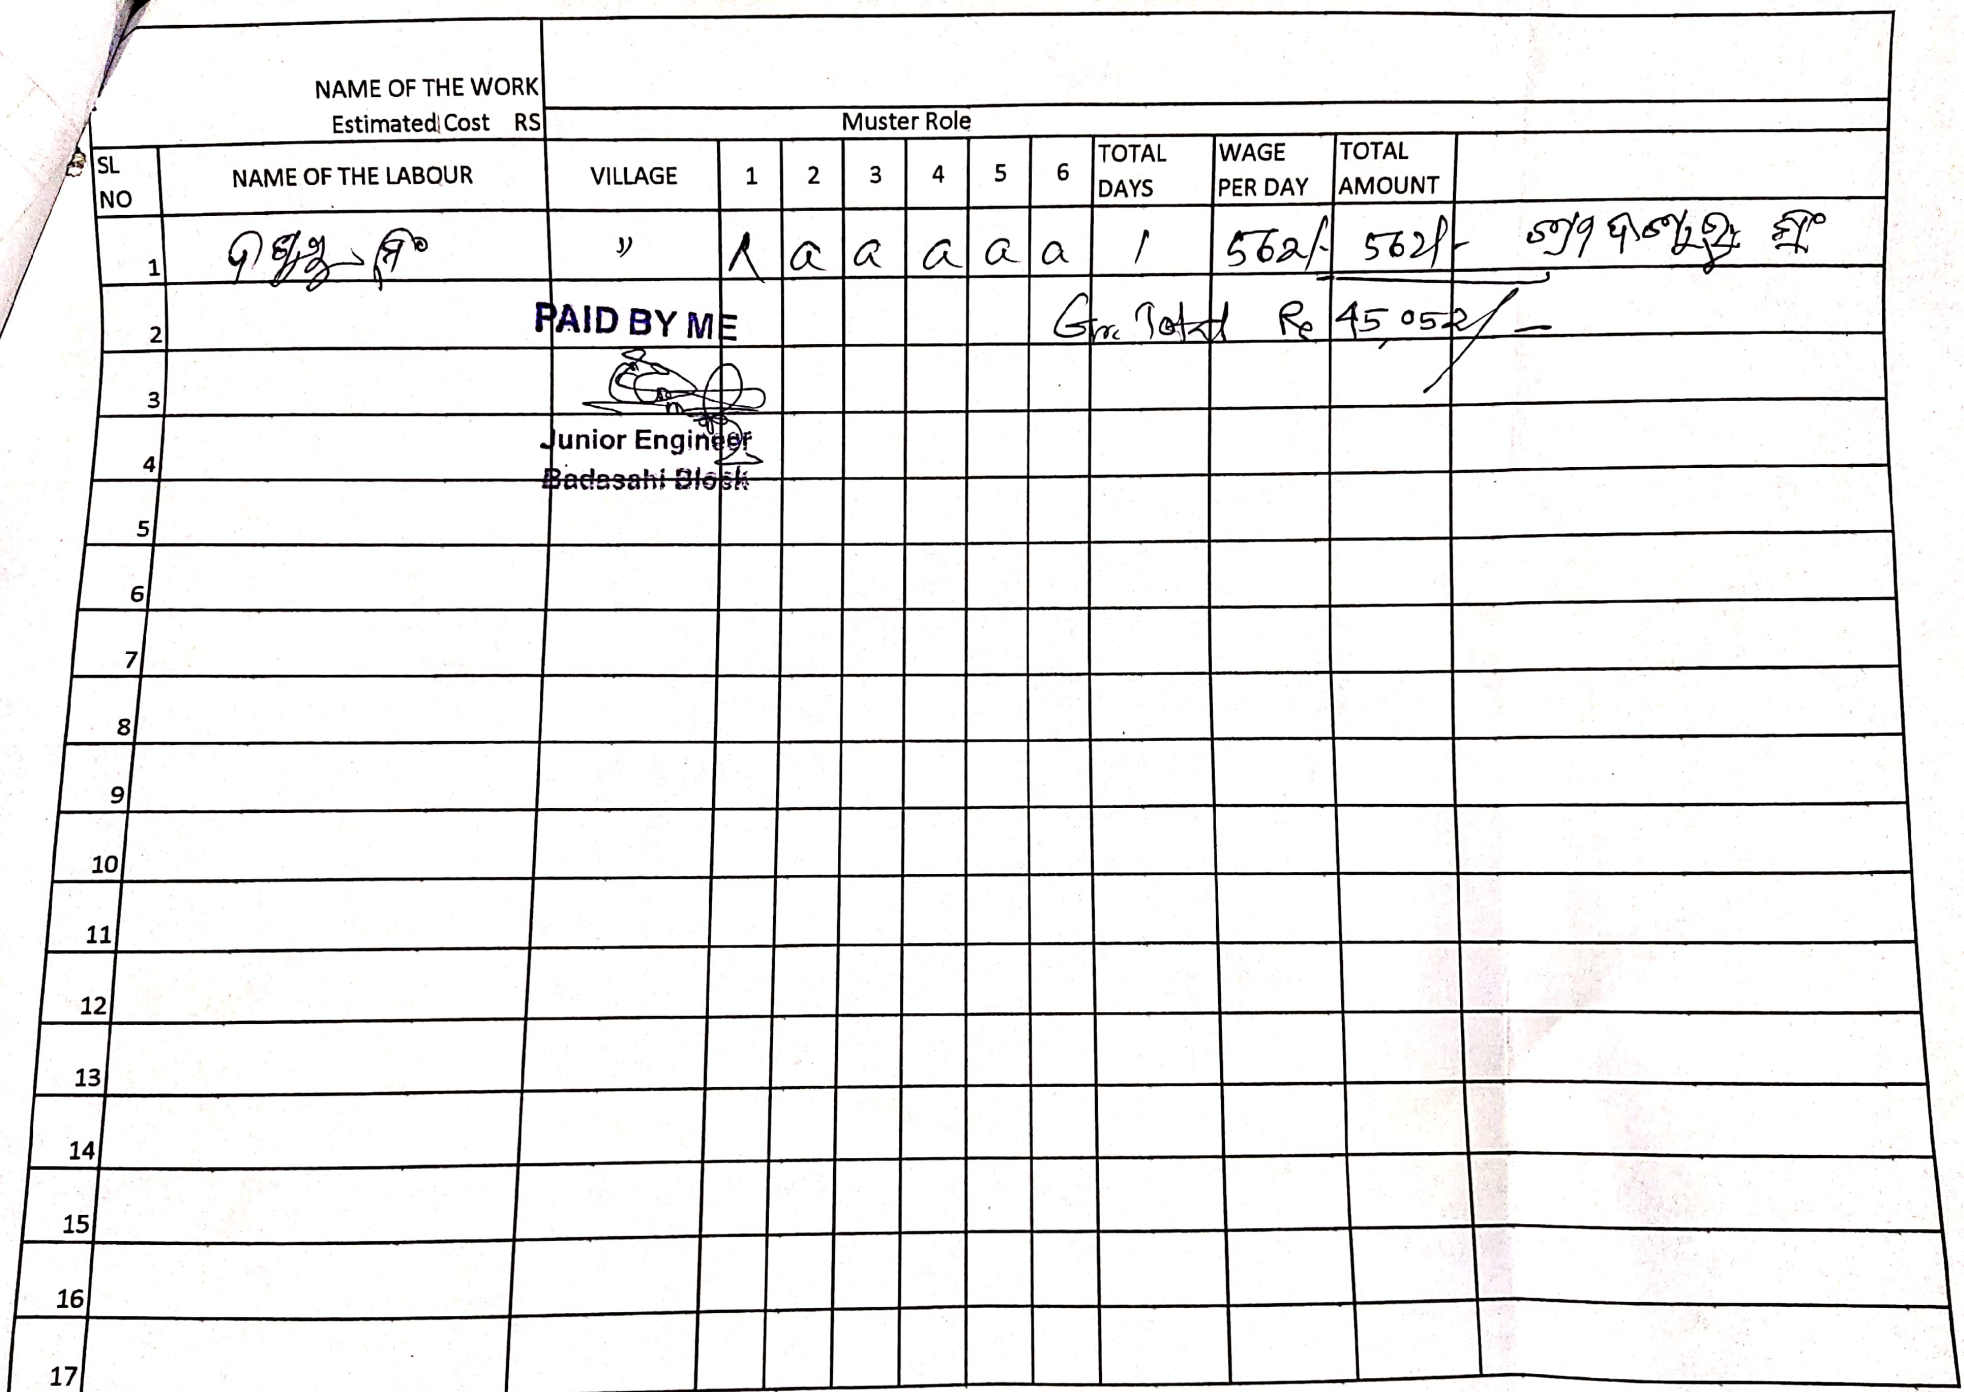 NAME OF THE WORK
Estimated Cost RS
Muster Role
SL NO NAME OF THE LABOUR VILLAGE 1 2 3 4 5 6 TOTAL DAYS WAGE PER DAY TOTAL AMOUNT
1 " a a a a a 1 562/- 562/-
2 Gr. Total Rs 45,052/-
PAID BY ME
3
Junior Engineer
4
Badasahi Block
5
6
7
8
9
10
11
12
13
14
15
16
17